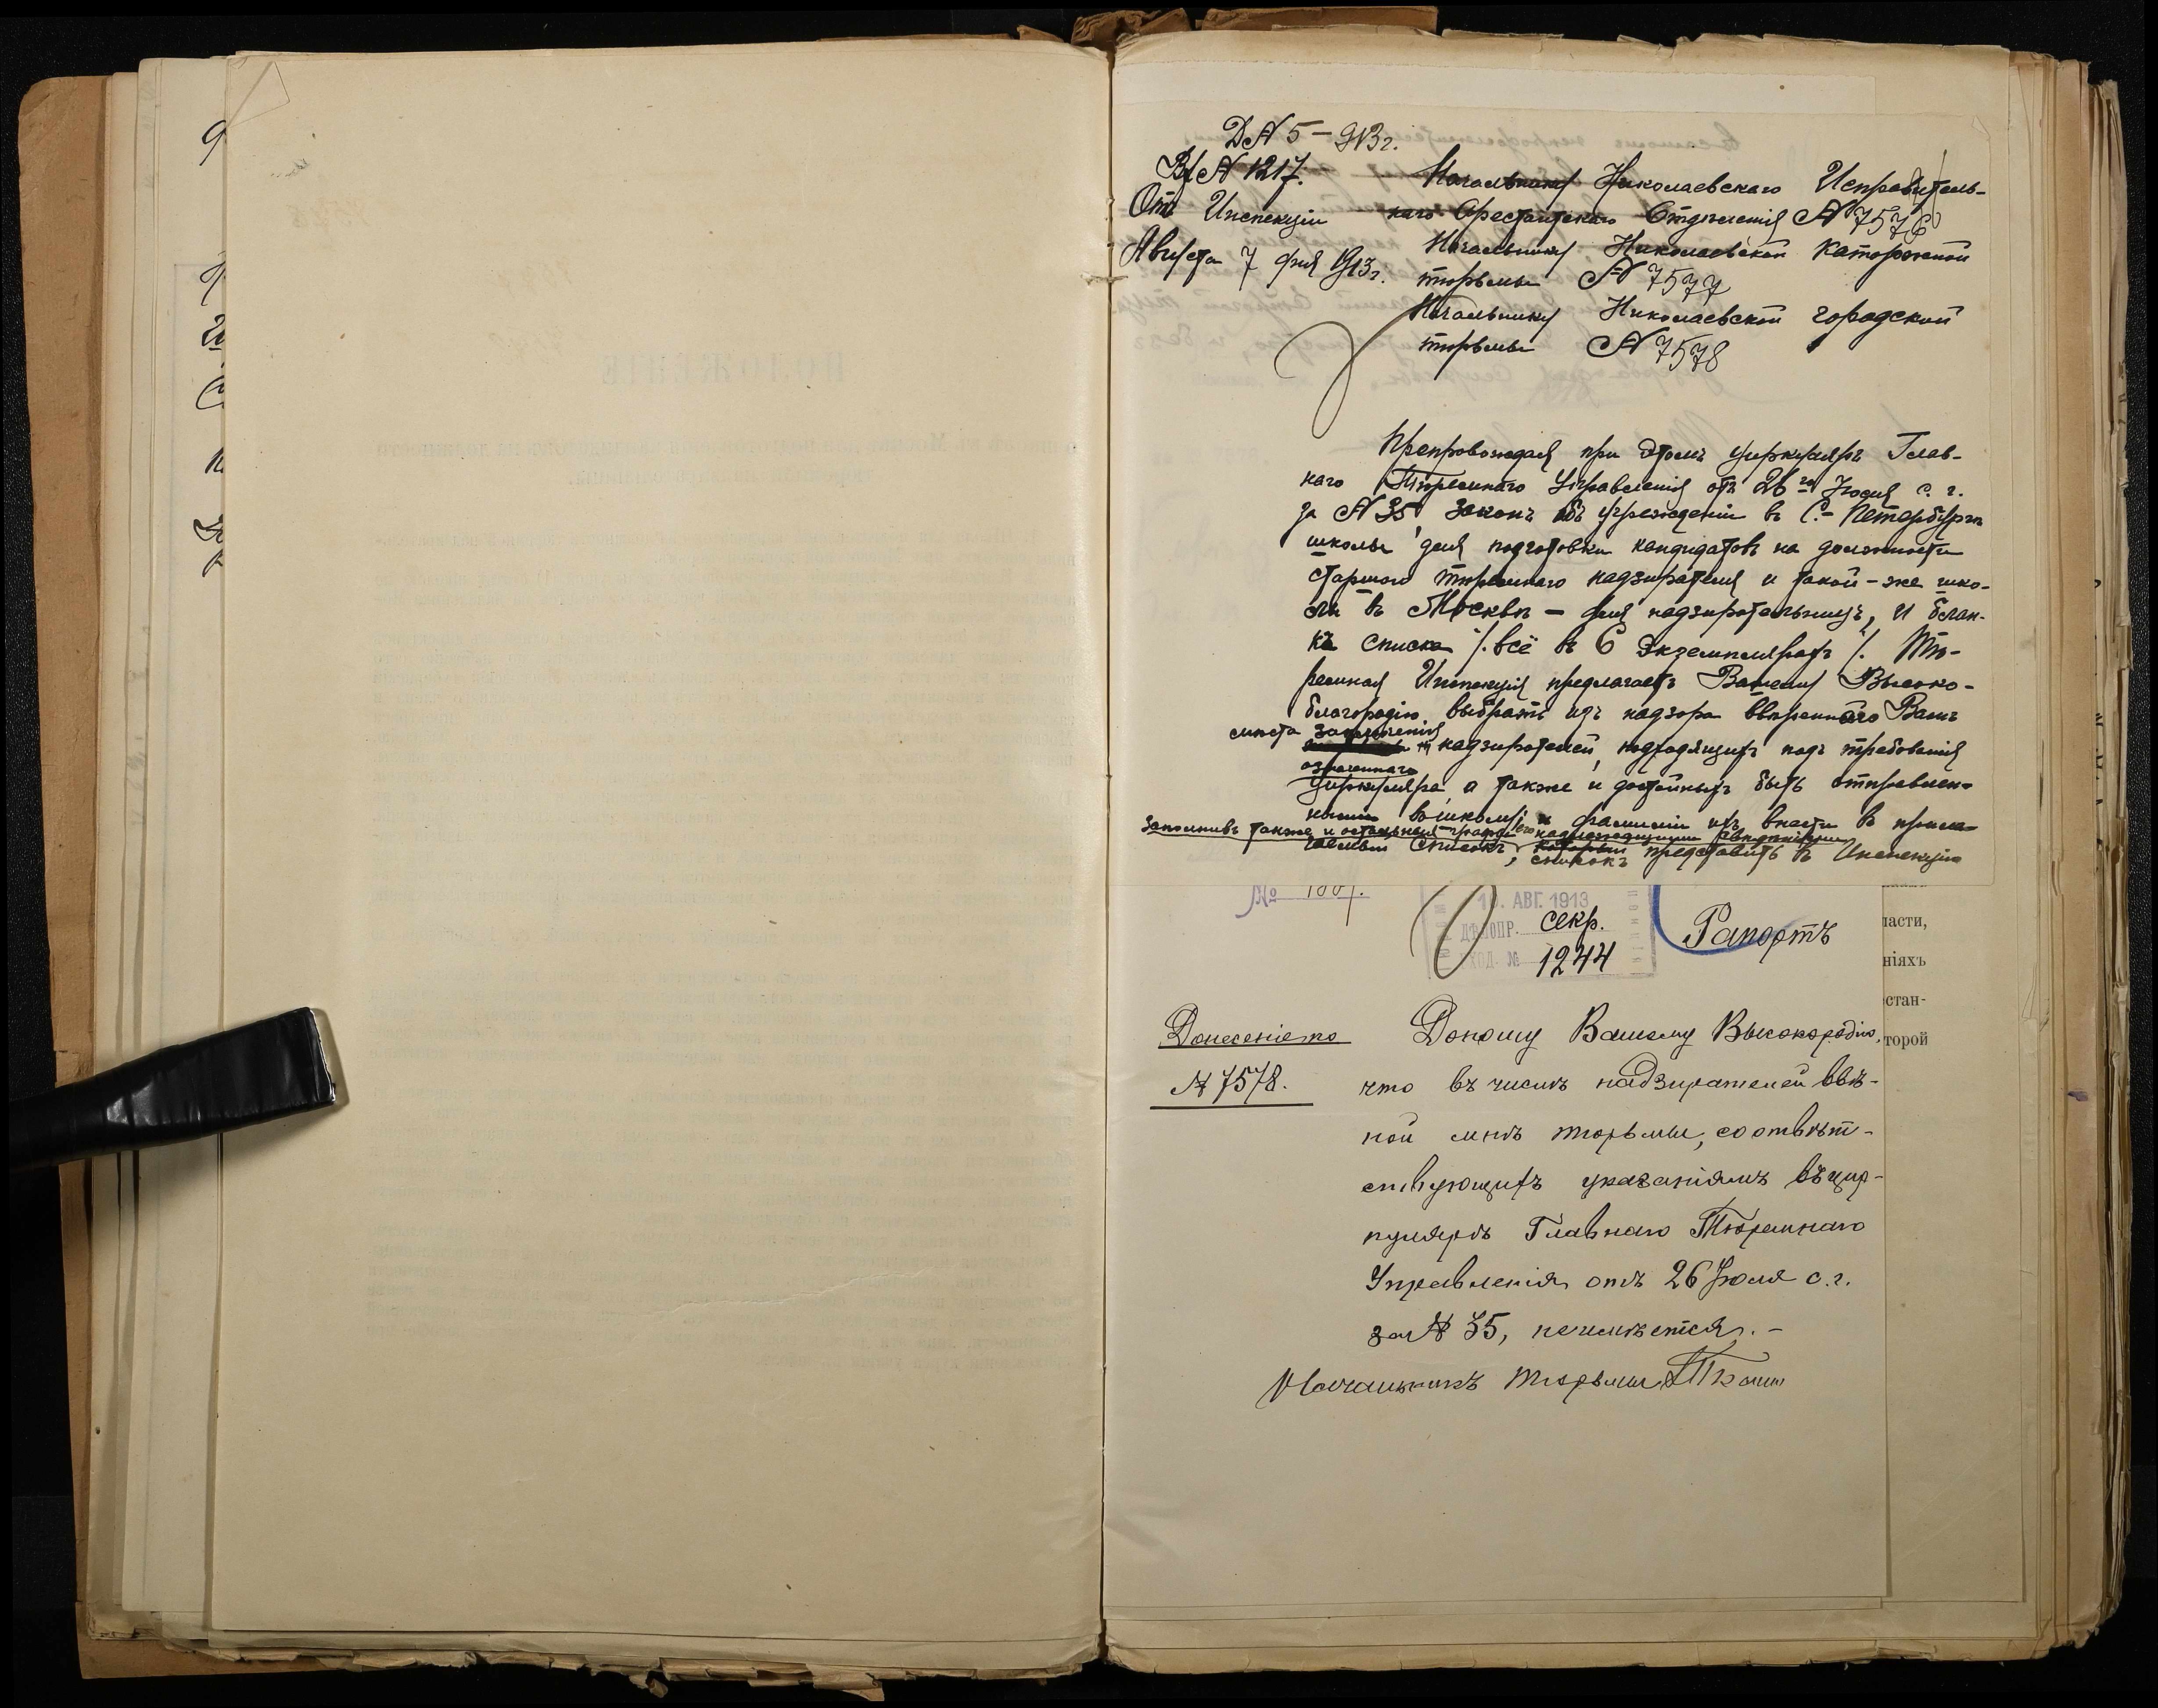 Д № 5 – 913 г.
Вх № 1217.
От Инспекціи
Августа 7 дня 1913 г.
Начальнику Николаевскаго Исправитель-
наго Арестантскаго Отдѣленія № 7576
Начальнику Николаевской Каторжной
тюрьмы № 7577
Начальнику Николаевской городской
тюрьмы № 7578
Препровождая при этомъ циркуляръ Глав-
наго Тюремнаго Управленія отъ 26 го Іюля с. г.
за № 35, законъ объ учрежденіи въ С.-Петербургѣ
школы для подготовки кандидатовъ на должности
старшаго тюремнаго надзирателя и такой-же шко-
лы въ Москвѣ – для надзирательницъ, и блан-
ки списка /. всё въ 6 экземплярахъ /. Тю-
ремная Инспекція предлагаетъ Вашему Высоко-
благородію выбрать изъ надзора ввѣреннаго Вамъ
мѣста заключенія
надзирателей, подходящихъ подъ требованія
означеннаго
циркуляра а также и достойныхъ быть отправлен-
ными въ школу, и фамиліи ихъ внести въ прила-
заполнивъ также и остальныя графы его надлежащими свѣдѣніями
гаемый списокъ, который
списокъ представить въ Инспекцію
№
10. АВГ. 1913
секр.
ХОД. № 1244
Рапортъ
ласти,
ніяхъ
стан-
торой
Донесеніе на
№ 7578.
Доношу Вашему Высокородію,
что въ числѣ надзирателей ввѣ-
ной мнѣ тюрьмы, соотвѣт-
ствующихъ указаніямъ въ цир-
кулярѣ Главнаго Тюремнаго
Управленія отъ 26 Іюля с. г.
за № 35, не имѣется. –
Начальникъ тюрьмы